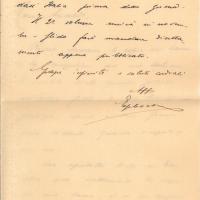 dall'Italia prima dei giorni.
Il 2° volume uscirà in novem-
bre - Glielo farò mandare diretta
mente appena pubblicato.
Grazie infinite e saluti cordiali